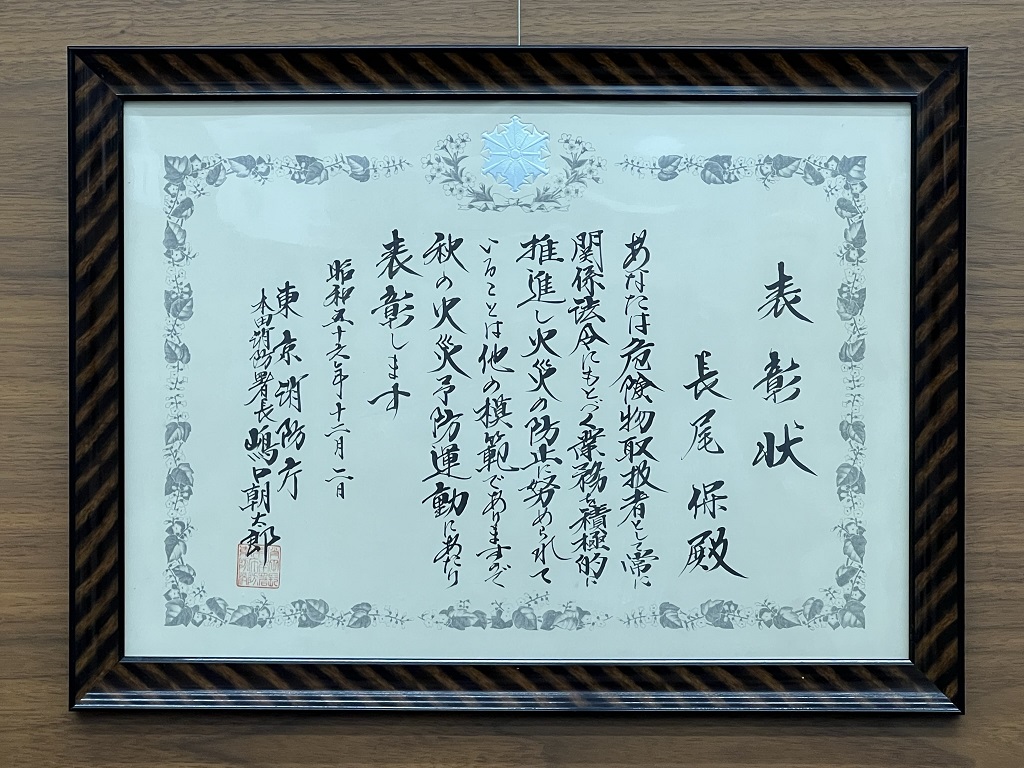 表彰状
長尾保殿
あなたは危険物取扱者として常に
関係法令にもとづく業務を積極的に
推進し火災の防止に努められて
いることは他の模範でありますので
秋の火災予防運動にあたり
表彰します
昭和五十六年十二月二日
東京消防庁
本田消防署長嶋口朝太郎